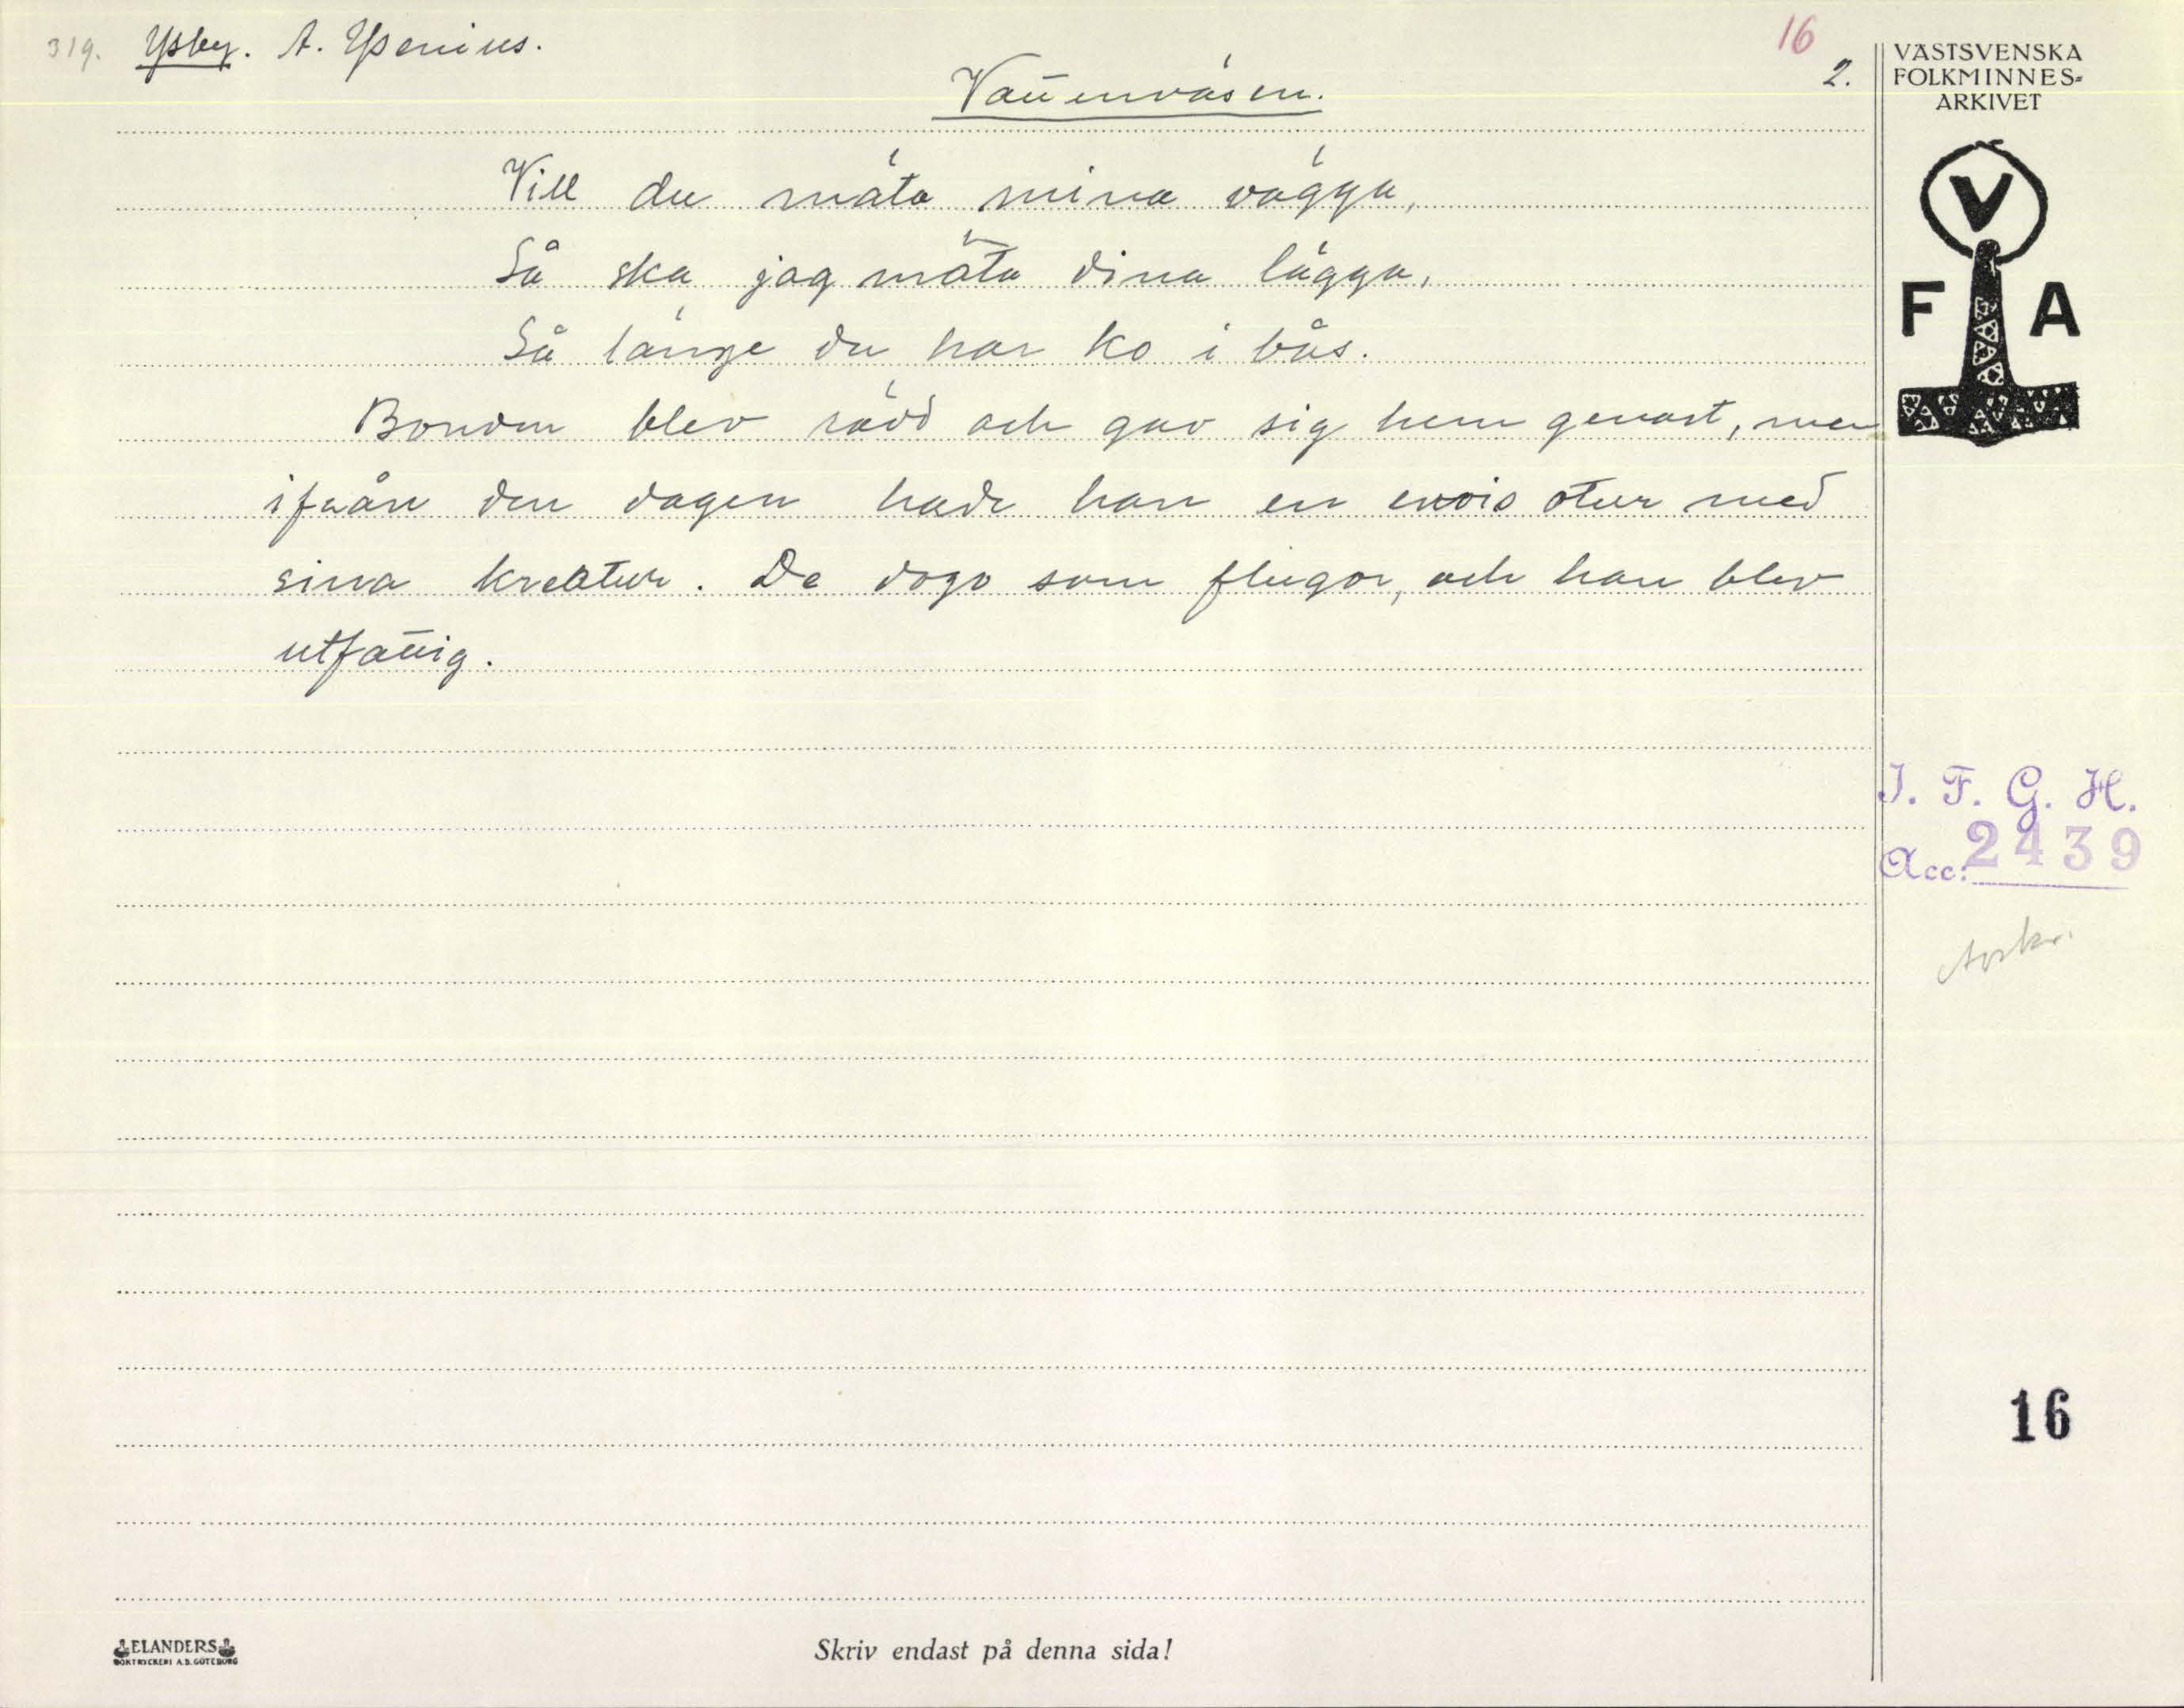 319. Ysby. A. Ysenius.
16
2.
Vattenväsen.
Vill du mäta mina vägga,
Så ska jag mäta dina lägga,
Så länge du har ko i bås.
Bonden blev rädd och gav sig hem genast, men
ifrån den dagen hade han en envis otur med
sina kreatur. De dogo som flugor, och han blev
utfattig.
VÄSTSVENSKA
FOLKMINNES=
ARKIVET
V
F A
I. F. G. H.
Acc: 2439
Avskr.
16
ELANDERS
BOKTRYCKERI A.B. GÖTEBORG
Skriv endast på denna sida!